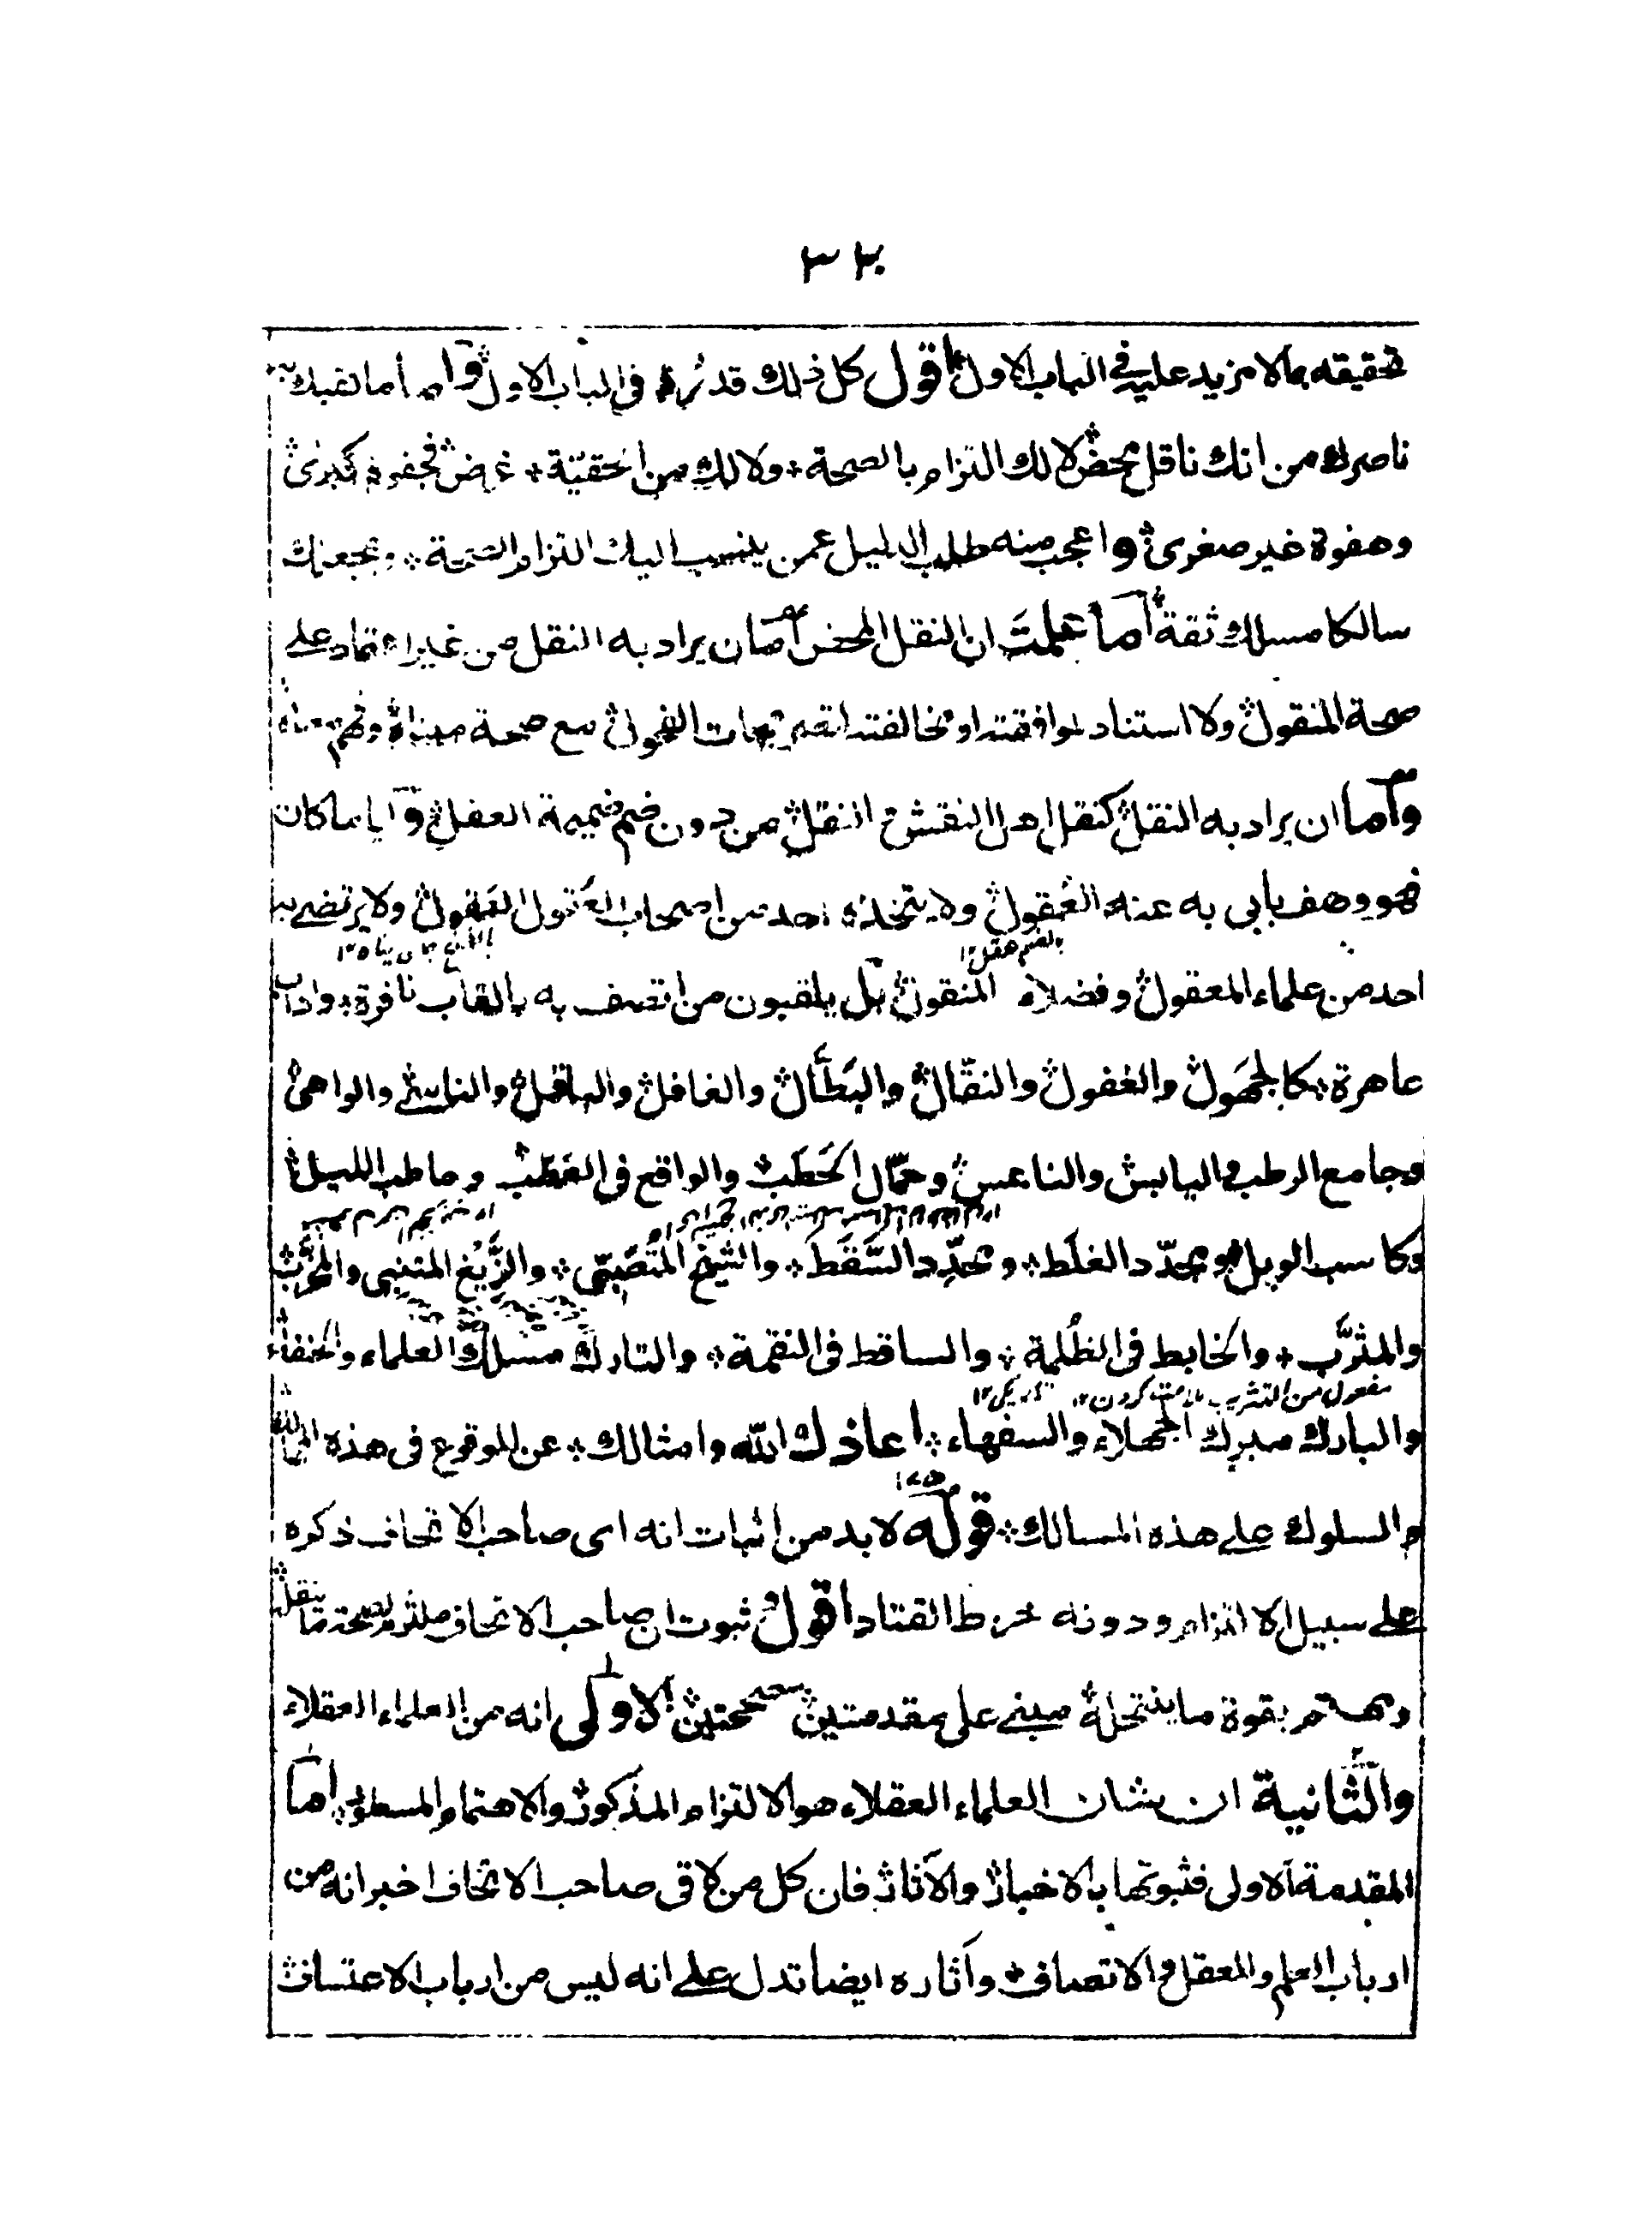 تحقيقه بما لا مزيد عليه في الباب الاول اقول كل ذلك قد في الباب الاول واما ما لقبك به
ناصرك من انك ناقل محض لا لك التزام بالصحة ولا لك من الحقية غرض فجفوة كبرى
وهفوة غير صغرى واعجب منه طلب الدليل عمن ينسب اليك التزام الصحة ويجعلك
سالكا مسلك ثقة أما علمت ان النقل المحض اما ان يراد به النقل من غير اعتماد على
صحة المنقول ولا استناد لموافقته او مخالفته لتصريحات الفحول مع صحة مبناه وفهم معناه
وأما ان يراد به النقل كنقل اهل النقش النقل من دون ضم ضميمة العقل وآيا ما كان
فهو وصف يأبى به عنه العُقول ولا يتخذه احد من اصحاب العقول العَقول ولا يرتضى به
بالضم عقل ١٢
احد من علماء المعقول وفضلاء المنقول بل يلقبون من اتصف به بالقاب نافرة وآداب
عاهرة كالجهول والغفول والنقّال والبطّال والغافل والباقل والناسى والواهى
وجامع الرطب واليابس والناعس وحمّال الحَطَب والواقع في العَطَب وحاطب الليل
وكاسب الويل ومجدّد الغلَط ومحدّد السَّقَط والشيخ المتصبّى والزَّيْغ المتنبى والمخرَّب
والمثرَّب والخابط في الظُلمة والساقط في النقمة والتارك مسلك العلماء والحنفاء
مفعول من التثريب ملامت كردن ١٢ تاريكى ١٢
والبارك مبرك الجهلاء والسفهاء اعاذك الله وامثالك عن الوقوع في هذه المهالك
والسلوك على هذه المسالك قوله لا بد من اثبات انه اى صاحب الاتحاف ذكره
على سبيل الالتزام ودونه خرط القتاد اقول ثبوت ان صاحب الاتحاف ملتزم لصحة ما ينقل
ومهتم بقوة ما ينتحله مبنى على مقدمتين صحيحتين الاولى انه من العلماء العقلاء
والثانية ان شان العلماء العقلاء هو الالتزام المذكور والاهتمام المسطور اما
المقدمة الاولى فثبوتها بالاخبار والآثار فان كل من لاقى صاحب الاتحاف اخبر انه من
ارباب العلم والعقل والانصاف وآثاره ايضا تدل على انه ليس من ارباب الاعتساف